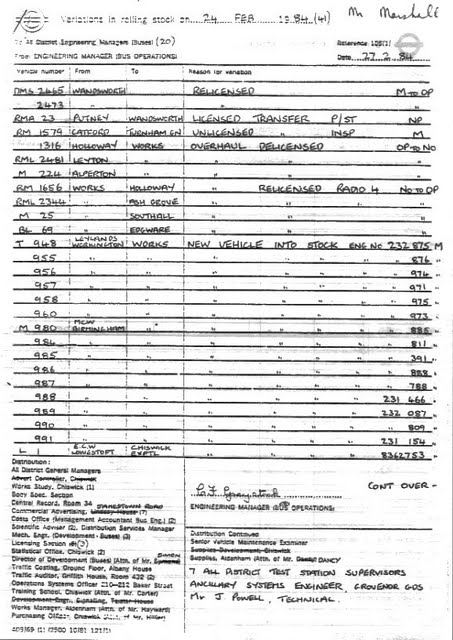 Variations in rolling stock on 24 FEB 1984 (41) Mr Marshall
To All District Engineering Managers (Buses) (20) Reference
From ENGINEERING MANAGER (BUS OPERATIONS) Date 27.2.84
Vehicle number From To Reason for variation
DMS 2465 WANDSWORTH RELICENSED M TO OP
2473 " " "
RMA 23 PUTNEY WANDSWORTH LICENSED TRANSFER P/ST NP
RM 1579 CATFORD TURNHAM GN UNLICENSED " INSP M
1316 HOLLOWAY WORKS OVERHAUL DELICENSED OP TO NO
RML 2481 LEYTON " " " "
M 224 ALPERTON " " " "
RM 1656 WORKS HOLLOWAY " RELICENSED RADIO 4 NO TO OP
RML 2344 " ASH GROVE " " "
M 25 " SOUTHALL " " "
BL 69 " EDGWARE " " "
T 948 LEYLANDS WORKINGTON WORKS NEW VEHICLE INTO STOCK ENG NO 232 875 M
955 " " " " " " " " 876 "
956 " " " " " " " " 974 "
957 " " " " " " " " 971 "
958 " " " " " " " " 975 "
960 " " " " " " " " 973 "
M 980 MCW BIRMINGHAM " " " " " " " 885 "
984 " " " " " " " " 811 "
985 " " " " " " " " 391 "
986 " " " " " " " " 888 "
987 " " " " " " " " 788 "
988 " " " " " " " 231 466 "
989 " " " " " " " 232 087 "
990 " " " " " " " " 809 "
991 " " " " " " " 231 154 "
L 1 E.C.W LOWESTOFT CHISWICK EXPTL " " " " " 8362753 "
CONT OVER -
ENGINEERING MANAGER (BUS OPERATIONS)
Distribution:
All District General Managers
Advert Controller, Chiswick
Works Study, Chiswick (1)
Body Spec. Section
Central Record, Room 34
Commercial Advertising, Lindsey House (7)
Costs Office (Management Accountant Bus Eng.) (2)
Scientific Adviser (2), Distribution Services Manager
Mech. Engr. (Development - Buses) (3)
Licensing Section
Statistical Office, Chiswick (2)
Director of Development (Buses) (Attn. of Mr. SIMON
Traffic Costing, Ground Floor, Albany House
Traffic Auditor, Griffith House, Room 432 (2)
Operations Systems Officer 210-212 Baker Street
Training School, Chiswick (Attn. of Mr. Carter)
Works Manager, Aldenham (Attn. of Mr. Hayward)
Purchasing Officer, Chiswick (Attn. of Mr. Hiller)
Distribution Continued
Senior Vehicle Maintenance Examiner
Supplies Development, Chiswick
Supplies, Aldenham (Attn. of Mr. DANCY
7 ALL DISTRICT TEST STATION SUPERVISORS
ANCILLARY SYSTEMS ENGINEER, GROVENOR GDS
Mr J. POWELL, TECHNICAL.